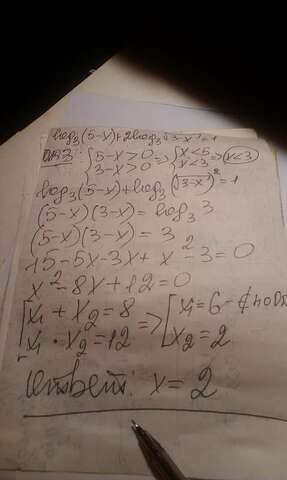 log₃(5-x)+2log₃√3-x = 1
ОДЗ: {5-x>0 3-x>0 => {x<5 x<3 => x<3
log₃(5-x)+log₃(√3-x)² = 1
(5-x)(3-x) = log₃3
(5-x)(3-x) = 3
15-5x-3x+x²-3=0
x²-8x+12=0
[x₁+x₂=8 x₁·x₂=12 => [x₁=6-∉ по ОДЗ x₂=2
Ответ: x=2